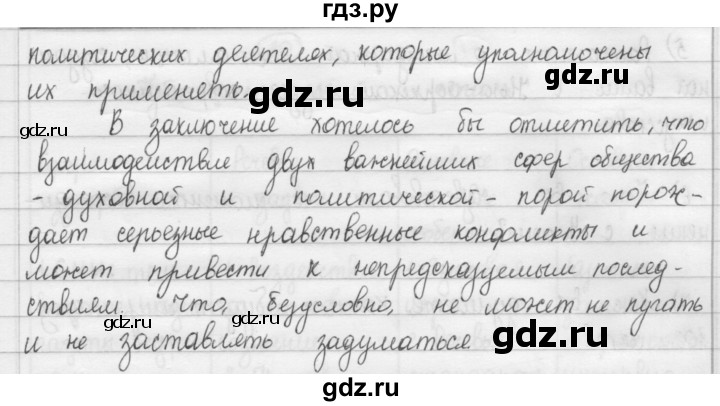 гдз.ру
политических деятелях, которые уполномочены
gdz.ru
их применять.
gdz.ru
gdz.ru
В заключение хотелось бы отметить, что
взаимодействие двух важнейших сфер общества
- духовной и политической - порой порож-
gdz.ru
дает серьезные нравственные конфликты и
может привести к непредсказуемым послед-
gdz.ru
ствиям. Что, безусловно, не может не пугать
gdz.ru
gdz.ru
и не заставлять задуматься.
gdz.ru